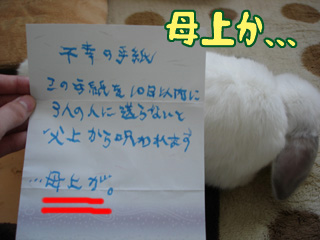 母上か、、、
不幸の手紙
この手紙を10日以内に
3人の人に送らないと
父上から呪われます
…母上が。